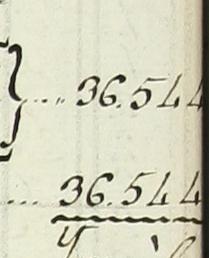 } .... 36.544
.... 36.544